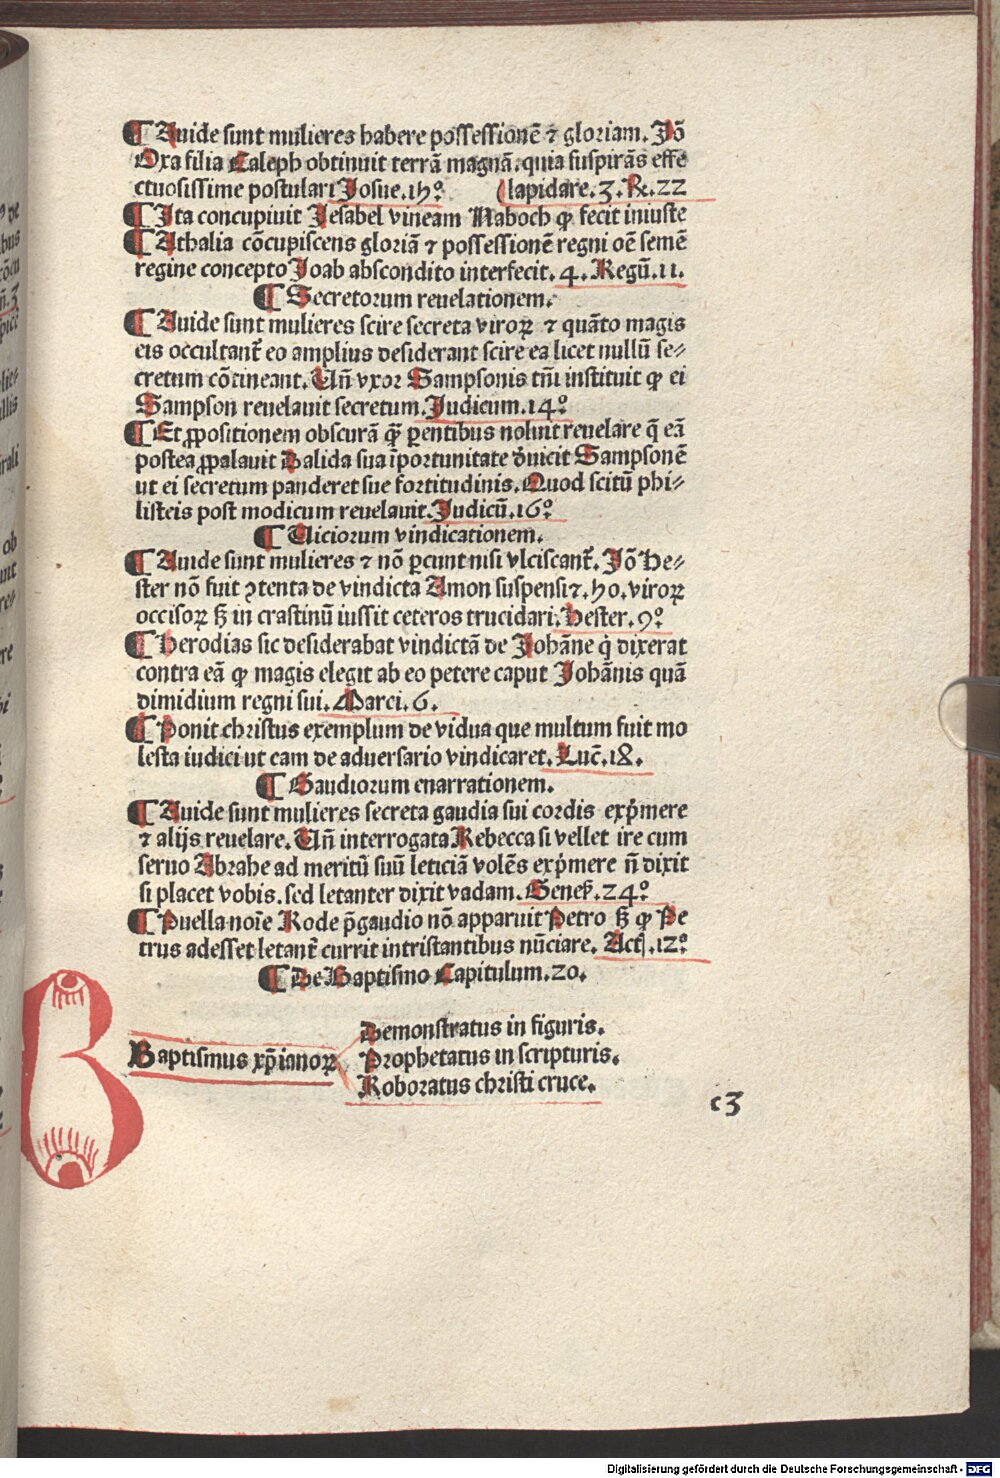 ¶ Auide sunt mulieres habere possessionē ⁊ gloriam. Jō
Oxa filia Caleph obtinuit terrā magnā. quia suspirās effe
ctuosissime postulari Josue. 15º. (lapidare. 3. Rͤ. 22
¶ Ita concupiuit Jesabel vineam Naboch ꝙ fecit iniuste
¶ Athalia cōcupiscens gloriā ⁊ possessionē regni oē semē
regine concepto Joab abscondito interfecit. 4. Regū. 11.
¶ Secretorum reuelationem.
¶ Auide sunt mulieres scire secreta viroꝝ ⁊ quāto magis
eis occultant̄ eo amplius desiderant scire ea licet nullū se⸗
cretum cōtineant. Un̄ vxor Sampsonis tm̄ instituit ꝙ ei
Sampson reuelauit secretum. Judicum. 14º.
¶ Et ꝓpositionem obscurā quā ꝑentibus noluit reuelare q̄ eā
postea ꝓpalauit Dalida sua īportunitate deuicit Sampsonē
ut ei secretum panderet sue fortitudinis. Quod scitū phi⸗
listeis post modicum reuelauit. Judicū. 16º.
¶ Uiciorum vindicationem.
¶ Auide sunt mulieres ⁊ nō ꝑcunt nisi vlciscant̄. Jō He⸗
ster nō fuit ꝯtenta de vindicta Amon suspensi ⁊. 50. viroꝝ
occisoꝝ sꝫ in crastinū iussit ceteros trucidari. Hester. 9º.
¶ Herodias sic desiderabat vindictā de Johāne q̇ dixerat
contra eā ꝙ magis elegit ab eo petere caput Johānis quā
dimidium regni sui. Marci. 6.
¶ Ponit christus exemplum de vidua que multum fuit mo
lesta iudici ut eam de aduersario vindicaret. Luc̄. 18.
¶ Gaudiorum enarrationem.
¶ Auide sunt mulieres secreta gaudia sui cordis exp̄mere
⁊ alijs reuelare. Un̄ interrogata Rebecca si vellet ire cum
seruo Abrahe ad meritū suū leticiā volēs exp̄mere n̄ dixit
si placet vobis. sed letanter dixit vadam. Genes̄. 24º.
¶ Puella noīe Rode p̄ gaudio nō apparuit Petro sꝫ ꝙ Pe
trus adesset letant̄ currit intristantibus nūciare. Act. 12º.
¶ De Baptismo Capitulum. 20.
B
Demonstratus in figuris.
Baptismus xp̄ianoꝝ Prophetatus in scripturis.
Roboratus christi cruce.
c3
Digitalisierung gefördert durch die Deutsche Forschungsgemeinschaft - DFG